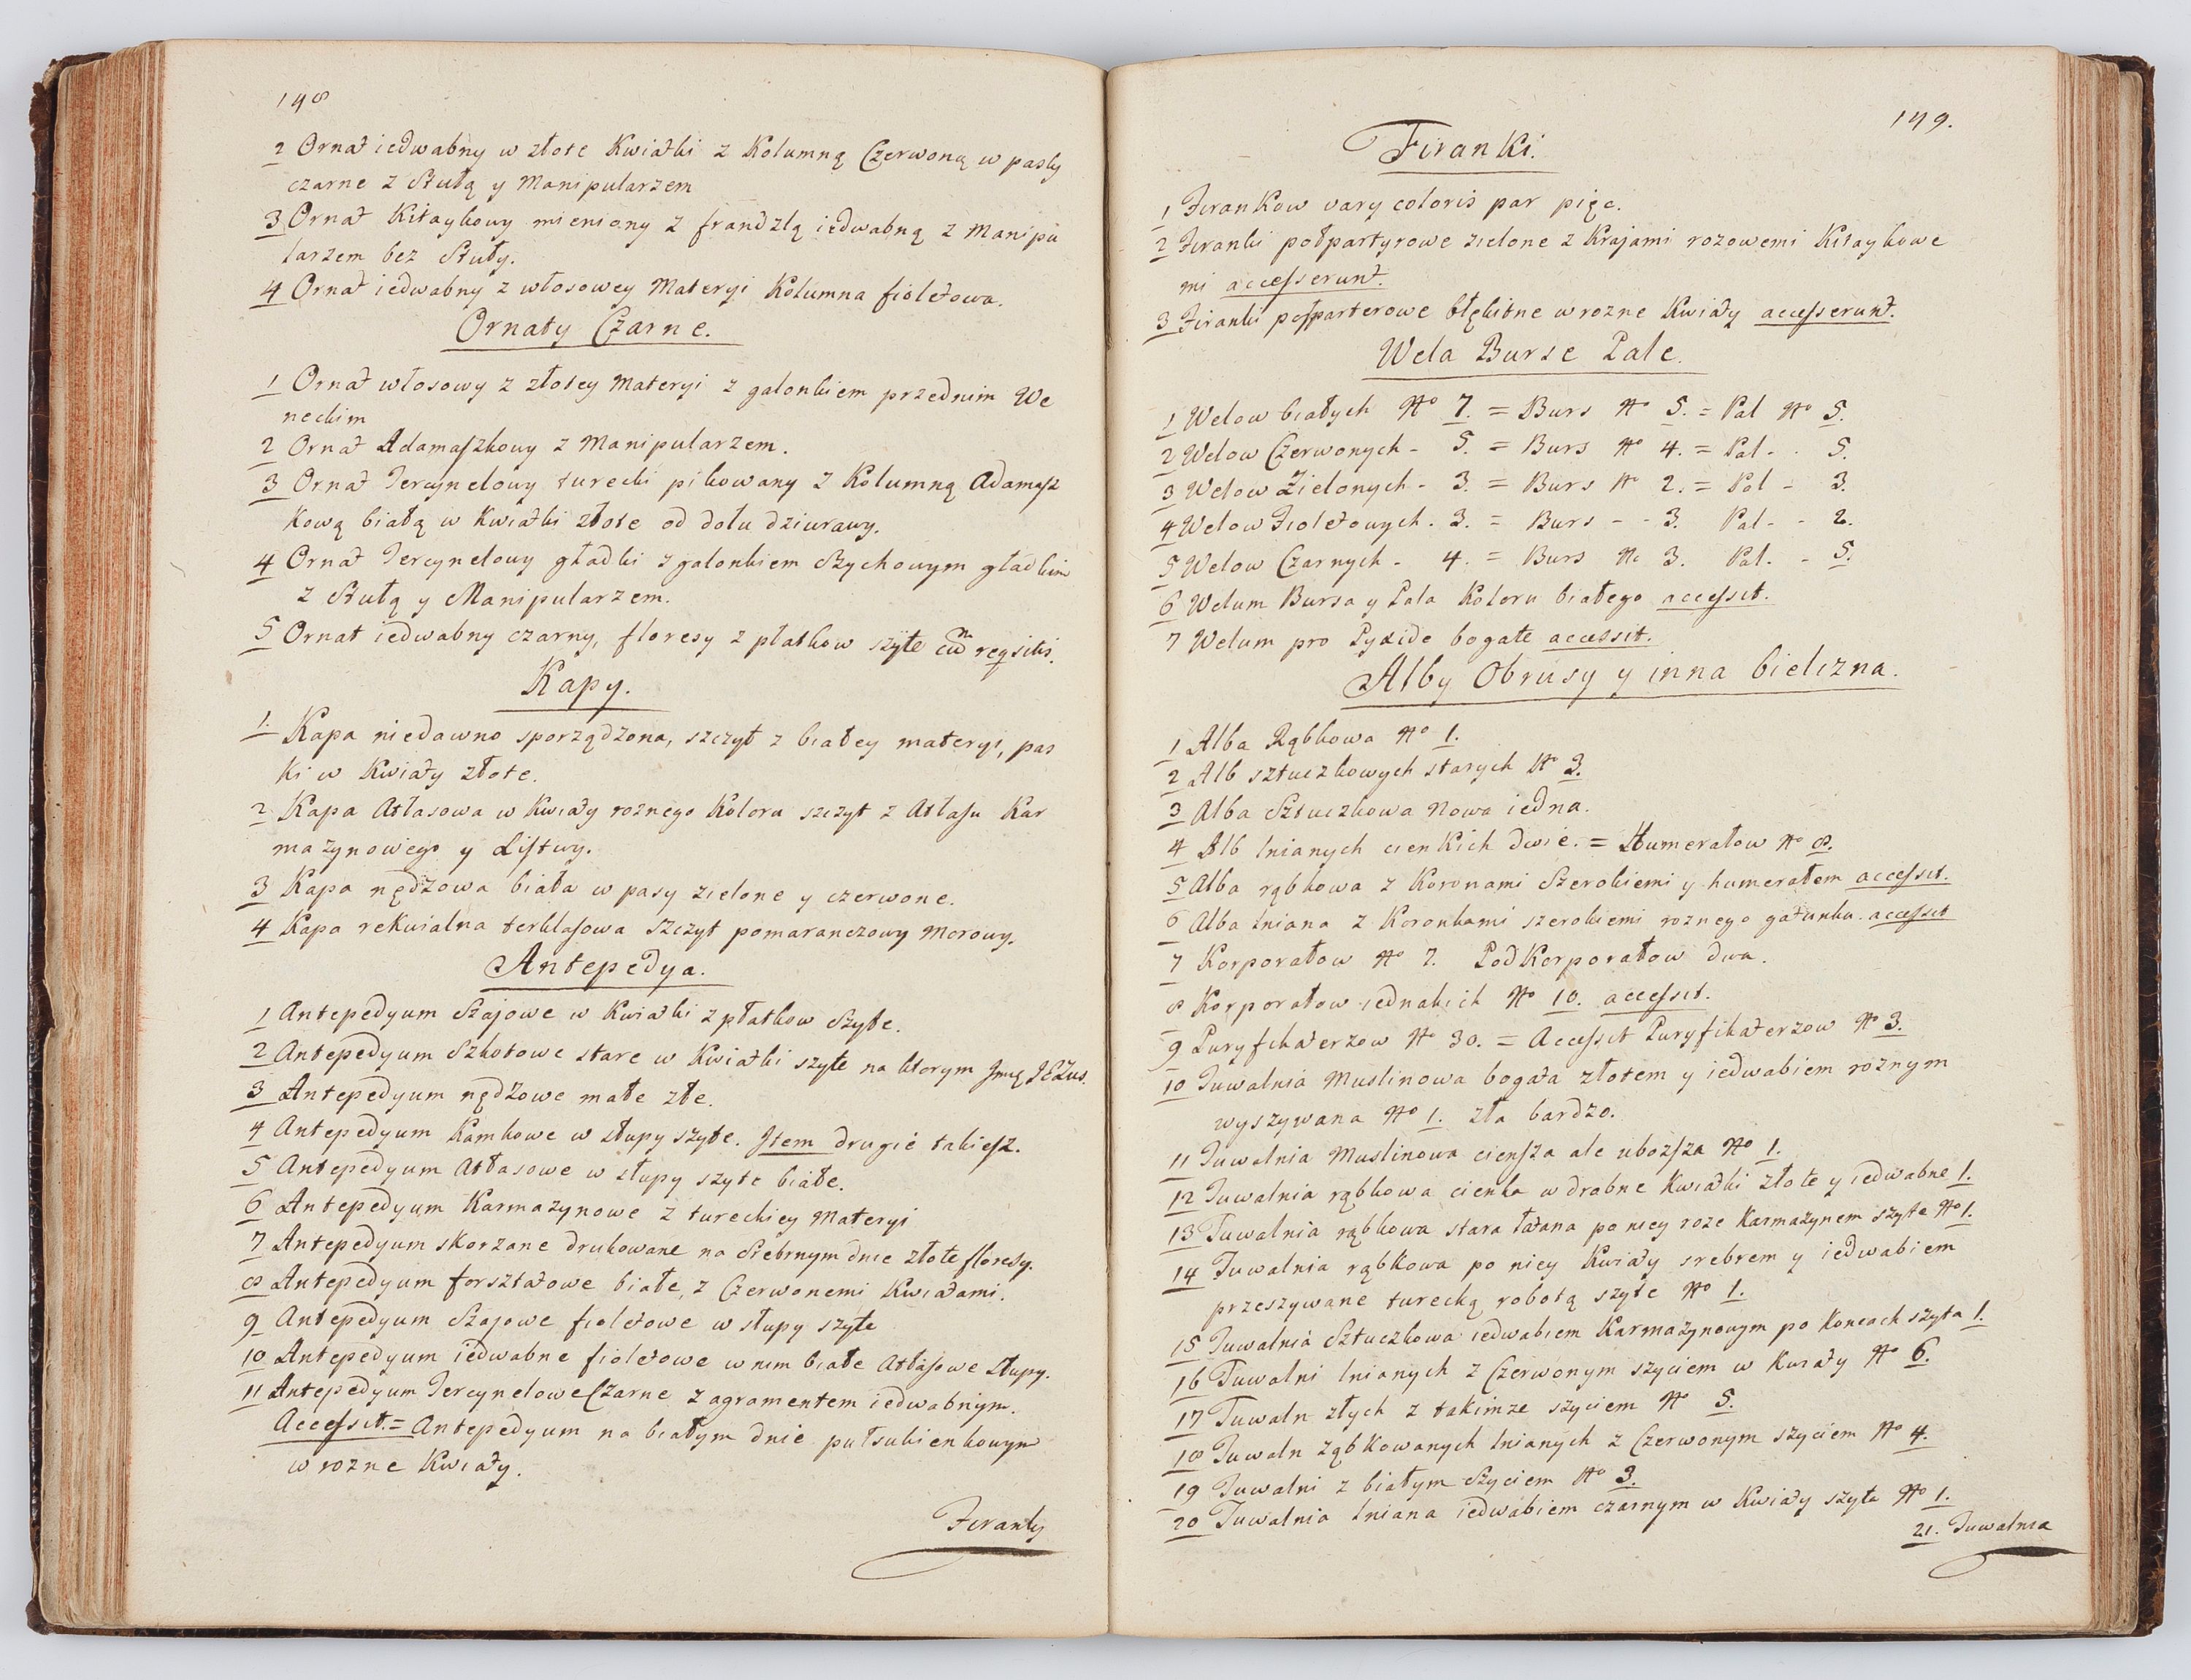 148
2 Ornat iedwabny w złote Kwiatki z Kolumną Czerwoną w pasky
czarne z Stułą y Manipularzem
3 Ornat Kitaykowy mieniony z frandzlą iedwabną z Manipu
larzem bez Stuły.
4 Ornat iedwabny z włosowey Materyi Kolumna fioletowa.
Ornaty Czarne.
1 Ornat włosowy z złotey Materyi z galonkiem przednim We
neckim
2 Ornat Adamaszkowy z Manipularzem.
3 Ornat Tercynelowy turecki pikowany z Kolumną Adamasz
kową białą w Kwiatki złote od dołu dziurawy.
4 Ornat Tercynelowy gładki z galonkiem Szychowym gładkim
z Stułą y Manipularzem.
5 Ornat iedwabny czarny, floresy z płatkow szyte cum reqsitis.
Kapy.
1. Kapa niedawno sporządzona, szczyt z białey materyi, pas
ki w Kwiaty złote.
2 Kapa Atłasowa w Kwiaty roznego Koloru szczyt z Atłasu Kar
mazynowiego y Listwy.
3 Kapa nędzowa biała w pasy zielone y czerwone.
4 Kapa rekwialna terklasowa Szczyt pomaranczowy Morowy.
Antepedya.
1 Antepedyum Szajowe w Kwiatki z płatkow Szyte.
2 Antepedyum Szkotowe stare w Kwiatki szyte na ktorym Jmię JEZus.
3 Antepedyum nędzowe małe złe.
4 Antepedyum Kamkowe w słupy szyte. Jtem drugie takiesz.
5 Antepedyum Atłasowe w słupy szyte białe.
6 Antepedyum Karmazynowe z tureckiey Materyi
7 Antepedyum skorzane drukowane na Srebrnym dnie złote floresy.
8 Antepedyum forsztatowe białe, z Czerwonemi Kwiatami.
9 Antepedyum Szajowe fioletowe w słupy szyte
10 Antepedyum iedwabne fioletowe w nim białe Atłasowe Słupy.
11 Antepedyum Tercynelowe Czarne z agramentem iedwabnym.
Accessit. = Antepedyum na białym dnie pułsukienkowym
w rozne Kwiaty.
Firanky
149.
Firanki.
1 Firankow vary coloris par pięc.
2 Firanki połpartyrowe zielone z Krajami rozowemi Kitaykowe
mi accesserunt.
3 Firanki połparterowe błękitne w rozne Kwiaty accesserunt.
Wela Burse Pale.
1 Welow białych No 7. = Burs No 5. = Pal No 5.
2 Welow Czerwonych - 5. = Burs No 4. = Pal - . 5.
3 Welow Zielonych - 3. = Burs No 2. = Pal - 3.
4 Welow Fioletowych . 3. = Burs - - 3. Pal - - 2.
5 Welow Czarnych - 4. = Burs No 3. Pal. - 5.
6 Welum Bursa y Pala Koloru białego accessit.
7 Welum pro Pyxide bogate accessit.
Alby Obrusy y inna bielizna.
1 Alba Rąbkowa No 1.
2 Alb sztuczkowych starych No 3.
3 Alba Sztuczkowa Nowa iedna.
4 Alb lnianych cienkich dwie. = Humerałow No 8.
5 Alba rąbkowa z Koronami Szerokiemi y humerałem accessit.
6 Alba lniana z Koronkami szerokiemi roznego gatunku. accessit
7 Korporałow No 7. PodKorporałow dwa.
8 Korporałow iednakich No 10. accessit.
9 Puryfikaterzow No 30. = Accessit Puryfikaterzow No 3.
10 Tuwalnia Muslinowa bogata złotem y iedwabiem roznym
wyszywana No 1. zła bardzo.
11 Tuwalnia Muslinowa ciensza ale ubozsza No 1.
12 Tuwalnia rąbkowa cienka w drobne Kwiatki złote y iedwabne 1.
13 Tuwalnia rąbkowa stara łatana po niey roze Karmazynem szyte No 1.
14 Tuwalnia rąbkowa po niey Kwiaty srebrem y iedwabiem
przeszywane turecką robotą szyte No 1.
15 Tuwalnia Sztuczkowa iedwabiem Karmazynowym po Koncach szyta 1.
16 Tuwalni lnianych z Czerwonym szyciem w Kwiaty No 6.
17 Tuwaln złych z takimze szyciem No 5.
18 Tuwaln ząbkowanych lnianych z Czerwonym szyciem No 4.
19 Tuwalni z białym Szyciem No 3.
20 Tuwalnia lniana iedwabiem czarnym w Kwiaty szyta No 1.
21. Tuwalnia